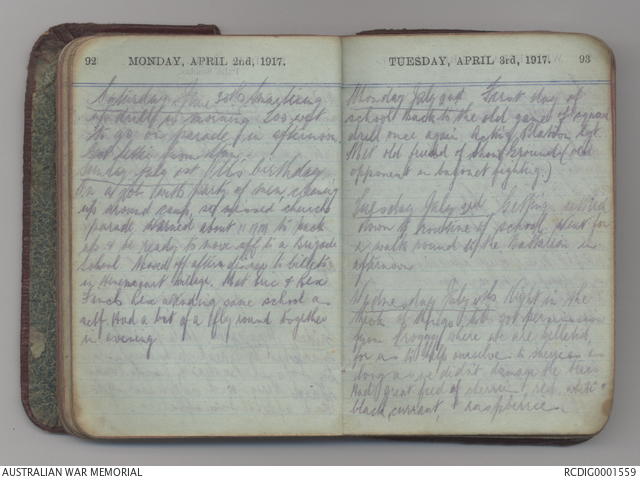 92 MONDAY, APRIL 2nd, 1917.
Saturday June 30th Practising
drill in morning
to go on parade in afternoon
Got letter from
Sunday July 1st birthday
On a party of men, cleaning
up around camp, church
parade Warned about 11 AM to pack
up & be ready to move off to a Brigade
School Moved off after dinner to billets
in village, Met Eric & Rex
Rex attending same school as
self. Had a bit of a fly round together
in evening
TUESDAY, APRIL 3rd, 1917. 93
Monday July 2nd First day of
school back to the old game of square
drill once again Acting Platoon Sgt.
Met old friend of (old
opponent in bayonet fighting.)
Tuesday July 3rd Getting settled
down to routine of school, went for
a walk round to the Battalion in
afternoon
Wednesday July 4th Right in the
thick of got permission
from where we are billeted
for us to help ourselves to cherries as
long as we didn't damage the trees
Had great feed of cherries, red, white &
black, currants, & raspberries
AUSTRALIAN WAR MEMORIAL
RCDIG0001559